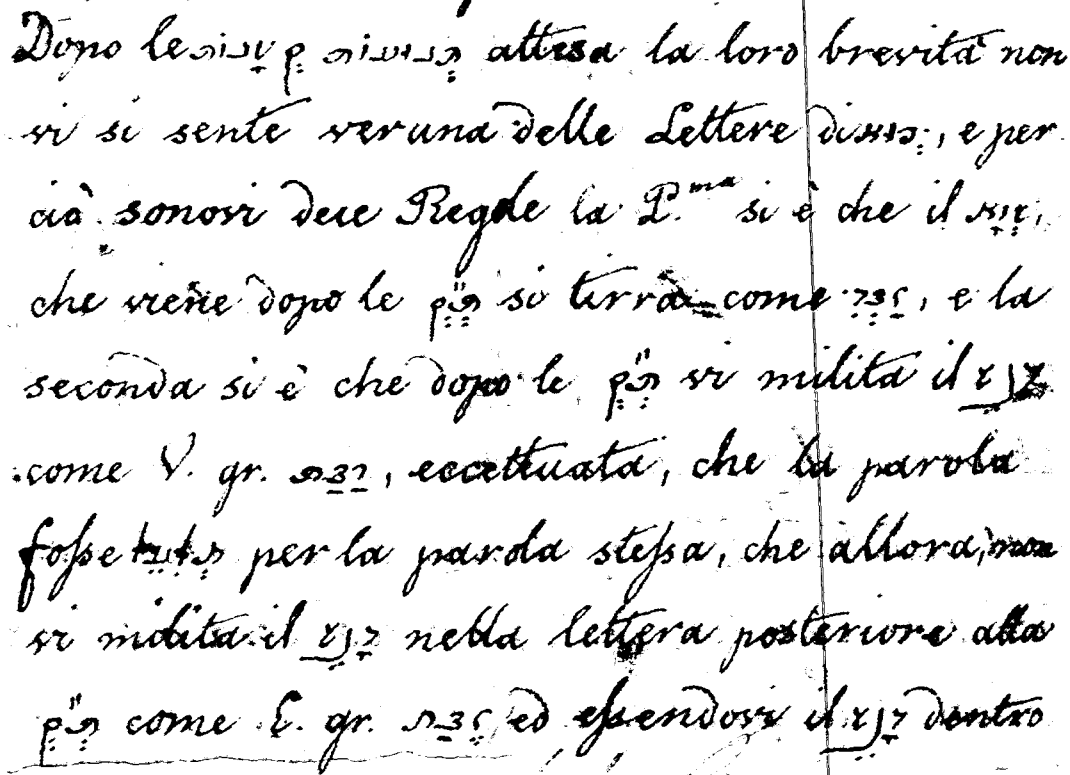 Dopo le תנועות קטנות attesa la loro brevità non
vi si sente veruna delle Lettere di , e per
ciò sonovi due Regole la P.ma si è che il שוא,
che viene dopo le ת״ק si terrà come , e la
seconda si è che dopo le ת״ק vi milita il דגש
come V. gr. , eccettuata, che la parola
fosse per la parola stessa, che allora, non
vi milita il דגש nella lettera posteriore alla
ת״ק come E. gr. ed essendovi il דגש dentro